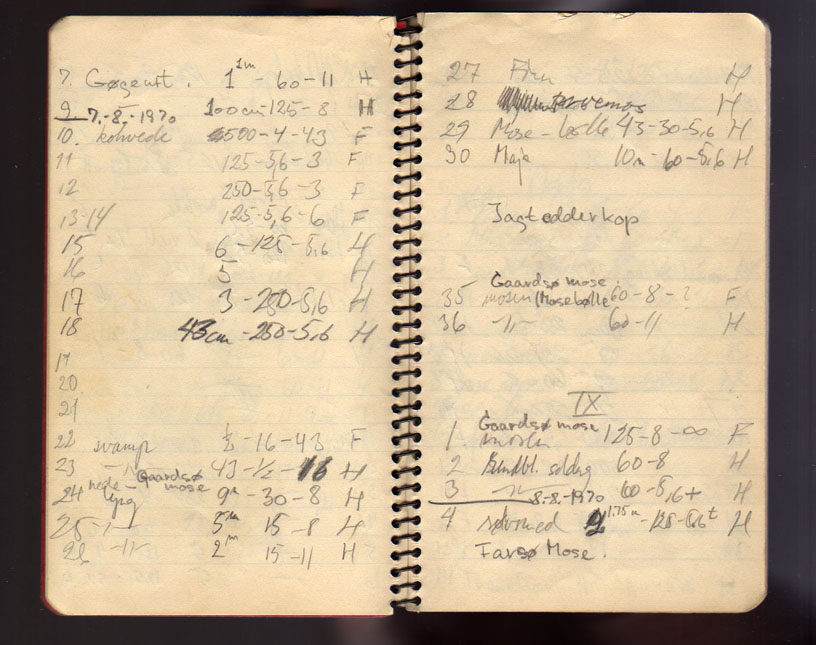 7. Gøgeurt. 1 1m - 60-11 H
9 100cm-125-8 H
7.-8.-1970
10. kohvede 500-4-43 F
11 125-5,6-3 F
12 250-5,6-3 F
13-14 125-5,6-6 F
15 6-125-5,6 H
16 5 H
17 3-250-5,6 H
18 43cm-250-5,6 H
19
20
21
22 svamp ½-16-43 F
23 -"- 43-½-16 H
Gaardsø mose
24 hede-lyng 9m-30-8 H
25 -"- 5m 15-8 H
26 -"- 2m 15-11 H
27 H
28 H
29 Mose-bølle 43-30-5,6 H
30 Maja 10m-60-5,6 H
Jagtedderkop
Gaardsø mose.
35 mosen (Mosebølle 60-8-? F
36 -"- 60-11 H
IX
Gaardsø mose
1. mosen 125-8-∞ F
2 Rundbl. soldug 60-8 H
3 -"- 60-5,6+ H
8.-8.-1970
4 1.75m-125-5,6 H
Farsø Mose.